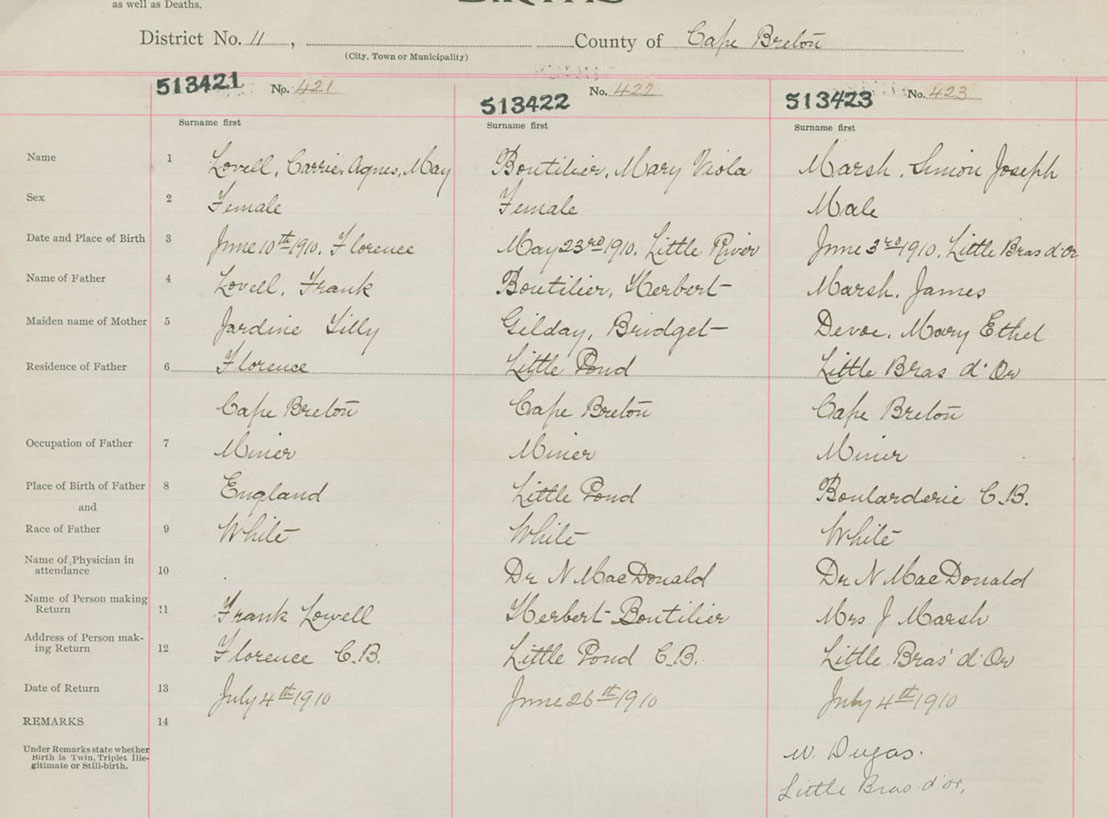 as well as Deaths.
BIRTHS
District No. 11, County of Cape Breton
(City, Town or Municipality)
513421 No. 421 513422 No. 422 513423 No. 423
Surname first Surname first Surname first
Name 1 Lovell, Carrie, Agnes, May Boutilier, Mary Viola Marsh, Simon Joseph
Sex 2 Female Female Male
Date and Place of Birth 3 June 10th 1910. Florence May 23rd 1910. Little River June 3rd 1910. Little Bras d'or
Name of Father 4 Lovell, Frank Boutilier, Herbert Marsh, James
Maiden name of Mother 5 Jardine Lilly Gilday, Bridget Devoe, Mary Ethel
Residence of Father 6 Florence Little Pond Little Bras d'Or
Cape Breton Cape Breton Cape Breton
Occupation of Father 7 Miner Miner Miner
Place of Birth of Father 8 England Little Pond Boularderie C.B.
and
Race of Father 9 White White White
Name of Physician in
attendance 10 Dr N MacDonald Dr N MacDonald
Name of Person making
Return 11 Frank Lowell Herbert Boutilier Mrs J Marsh
Address of Person mak-
ing Return 12 Florence C.B. Little Pond C.B. Little Bras d'Or
Date of Return 13 July 4th 1910 June 26th 1910 July 4th 1910
REMARKS 14
Under Remarks state whether
Birth is Twin, Triplet Ille-
gitimate or Still-birth.
W. Dugas.
Little Bras d'or,